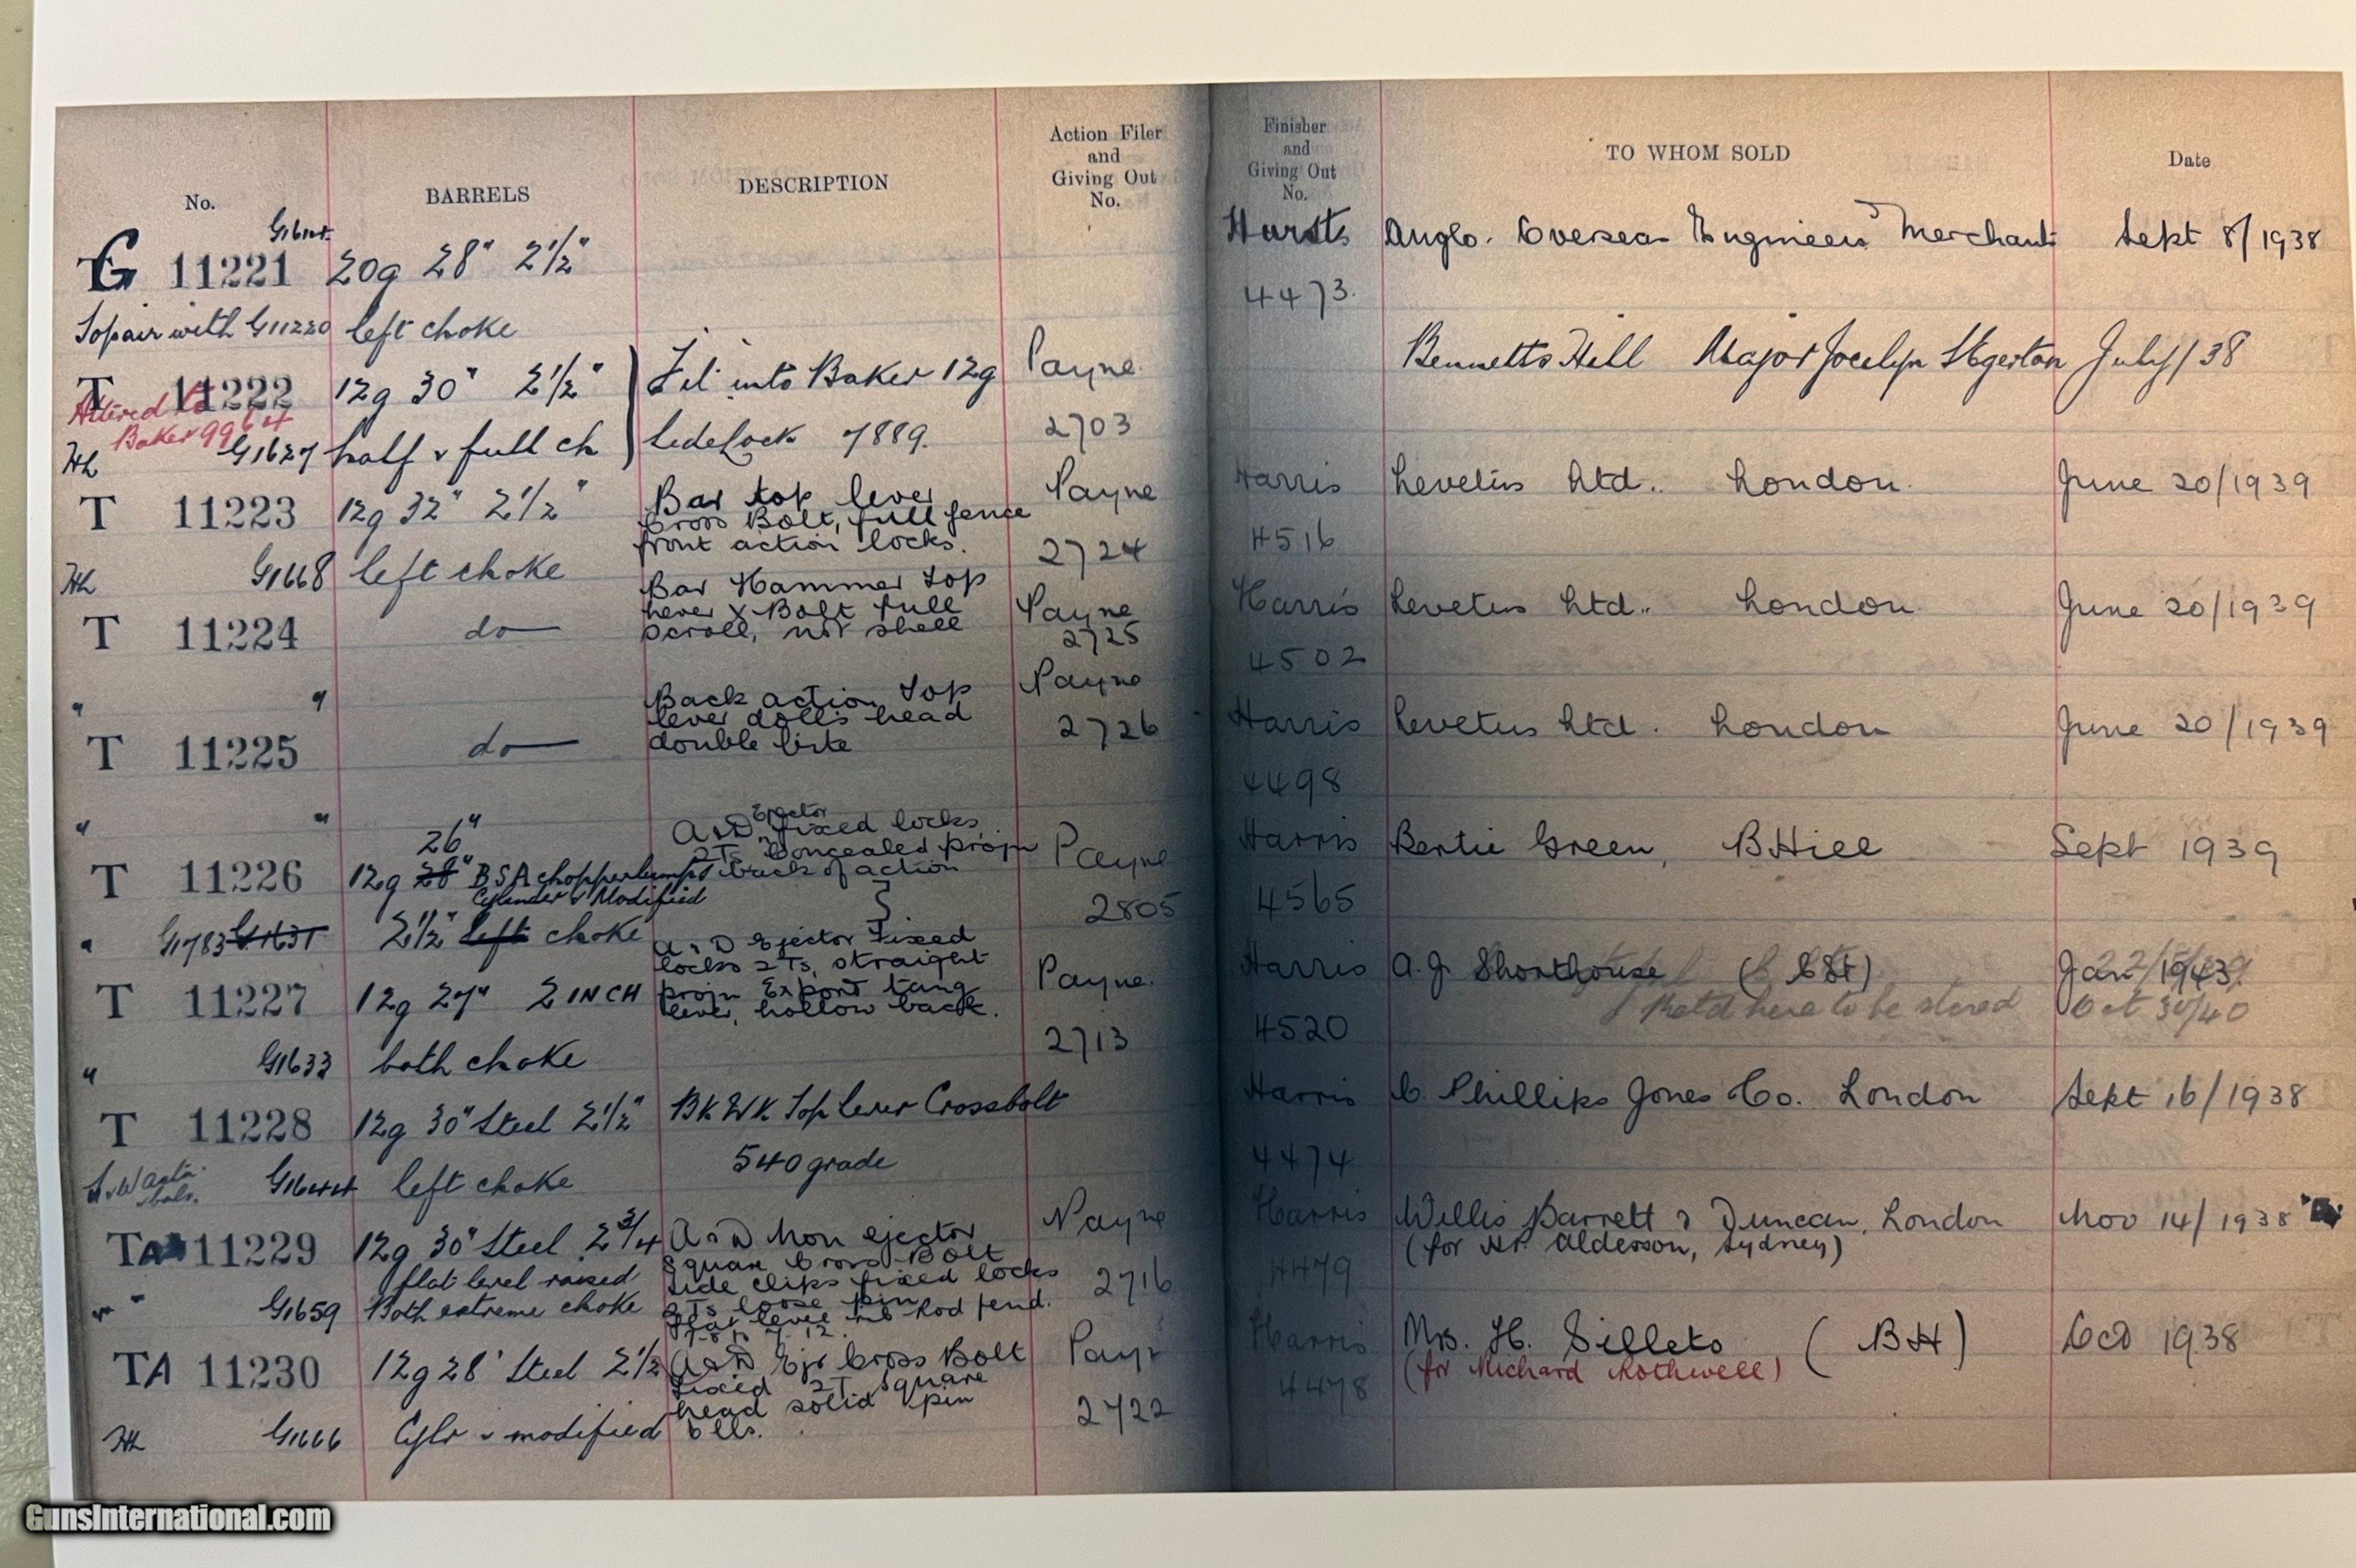 No.
BARRELS
DESCRIPTION
Action Filer
and
Giving Out
No.
Finisher
and
Giving Out
No.
TO WHOM SOLD
Date
G 11221 20g 28" 2½" Anglo. Overseas Engineers Merchants Sept 8/1938
4473.
To pair with G11220 left choke
T 11222 12g 30" 2½" Fit into Baker 12g Payne. Bennetts Hill Major Jocelyn Egerton July/38
Altered to
Baker 9964
G1627 half & full ch Sidelock 7889. 2703
T 11223 12g 32" 2½" Bar top lever Payne Harris Levetus Ltd.. London. June 20/1939
Cross Bolt, full fence
front action locks.
G1668 left choke 2724 4516
T 11224 do Bar Hammer Top Payne Harris Levetus Ltd.. London June 20/1939
lever X-Bolt full
scroll, not shell 2725
4502
" "
T 11225 do Back action Top Payne Harris Levetus Ltd. London June 20/1939
lever dolls head
double bite 2726
4498
" "
26"
T 11226 12g 28" BSA chopperlumps A&D Ejector fixed locks Payne Harris Bertie Green, BHill Sept 1939
2Ts concealed projn
back of action
Cylinder & Modified
" G1783 G1631 2½" left choke 2805 4565
T 11227 12g 27" 2 INCH A & D Ejector Fixed Payne. Harris A.J. Shorthouse
locks 2Ts, straight
projn Export tang
lever, hollow back.
Retd here to be stored Oct 30/40
" G1633 both choke 2713 4520
T 11228 12g 30" Steel 2½" Bk Wk Top Lever Crossbolt Harris C. Phillips Jones Co. London Sept 16/1938
540 grade 4474
G1644 left choke
TA 11229 12g 30" Steel 2¾ A & D Non ejector Payne Harris Willis Barrett & Duncan, London Nov 14/1938
(for Alderson, Sydney)
flat level raised Square Cross Bolt
Side clips fixed locks 2716 4479
" " G1659 Both extreme choke 2Ts loose pin
Flat level rib Rod fend.
TA 11230 12g 28" Steel 2½ A&D Ejr Cross Bolt Harris Mrs. H. Silleto (BH) Oct 1938
(for Richard Rothwell)
Fixed 2T Square
head solid pin 2722 4478
G1666 Cylr & modified blls.
GunsInternational.com